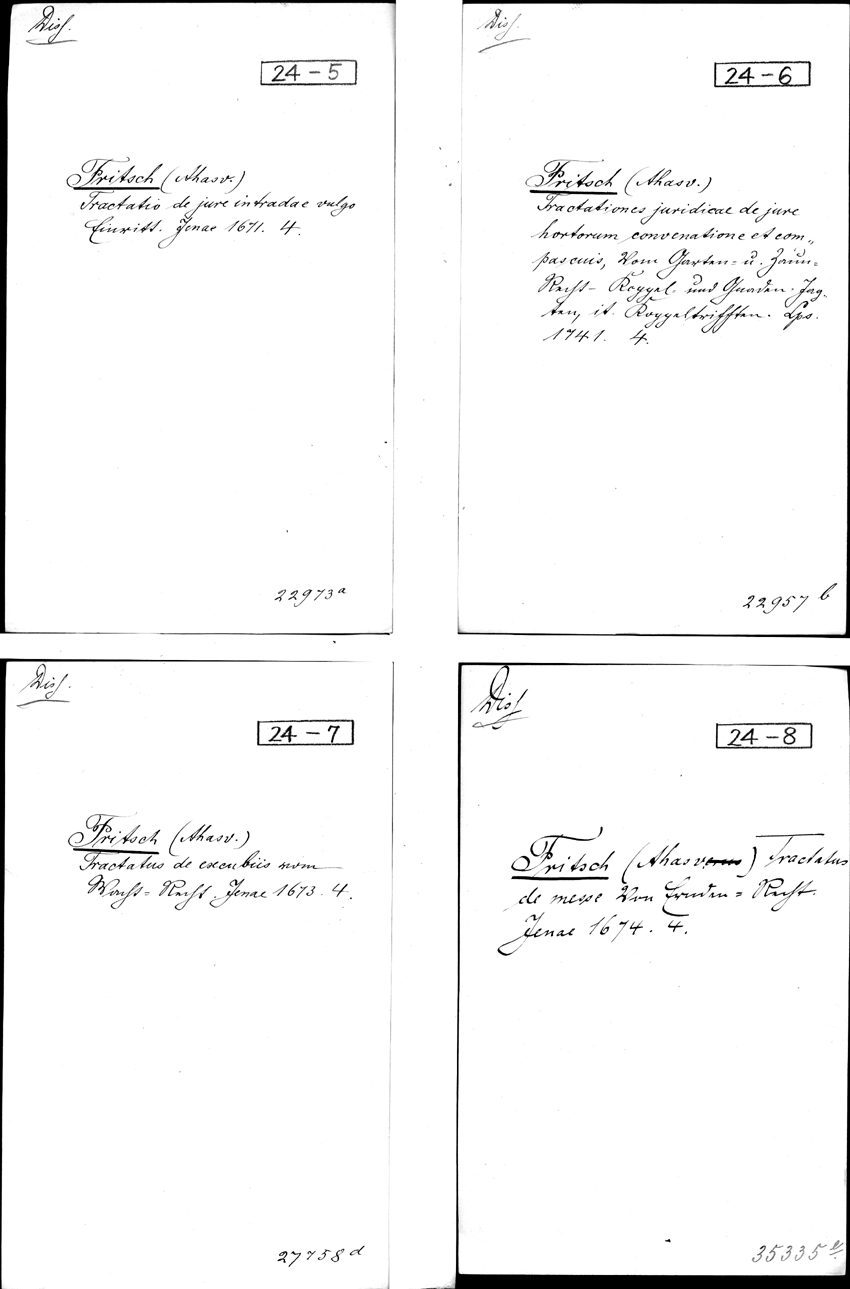 Diss.
24-5
Fritsch (Ahasv.)
Tractatio de jure intradae vulgo
Einritt. Jenae 1671. 4.
22973a
Diss.
24-6
Fritsch (Ahasv.)
Tractationes juridicae de jure
hortorum convenatione et com„
pascuis, Vom Garten= u. Zaun=
Recht- Koppel- und Gnaden-Jag-
ten, it. Koppeltrifften. Lps.
1741. 4.
22957 b
Diss.
24-7
Fritsch (Ahasv.)
Tractatus de excubiis vom
Wacht= Recht. Jenae 1673. 4.
27758 d
Diss
24-8
Fritsch (Ahasverus) Tractatus
de messe Von Ernden= Recht.
Jenae 1674. 4.
35335